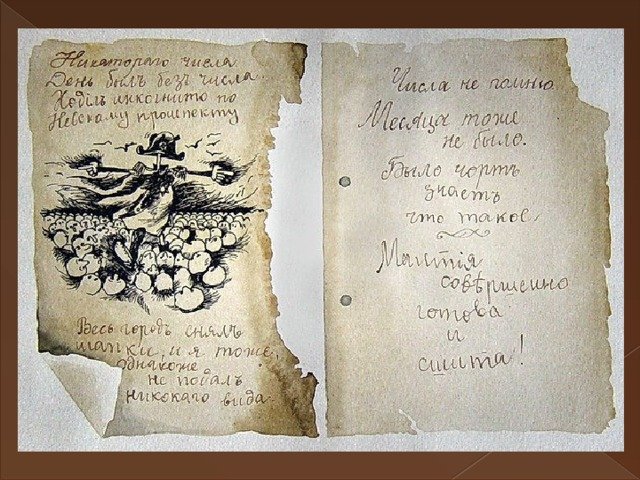 Никоторого числа
День былъ безъ числа.
Ходилъ инкогнито по
Невскому проспекту
Весь городъ снялъ
шапки, и я тоже,
однакоже
не подалъ
никакого вида
Числа не помню.
Месяца тоже
не было.
Было чортъ
знаетъ
что такое.
Мантiя
совѣршенно
готова
и
сшита!